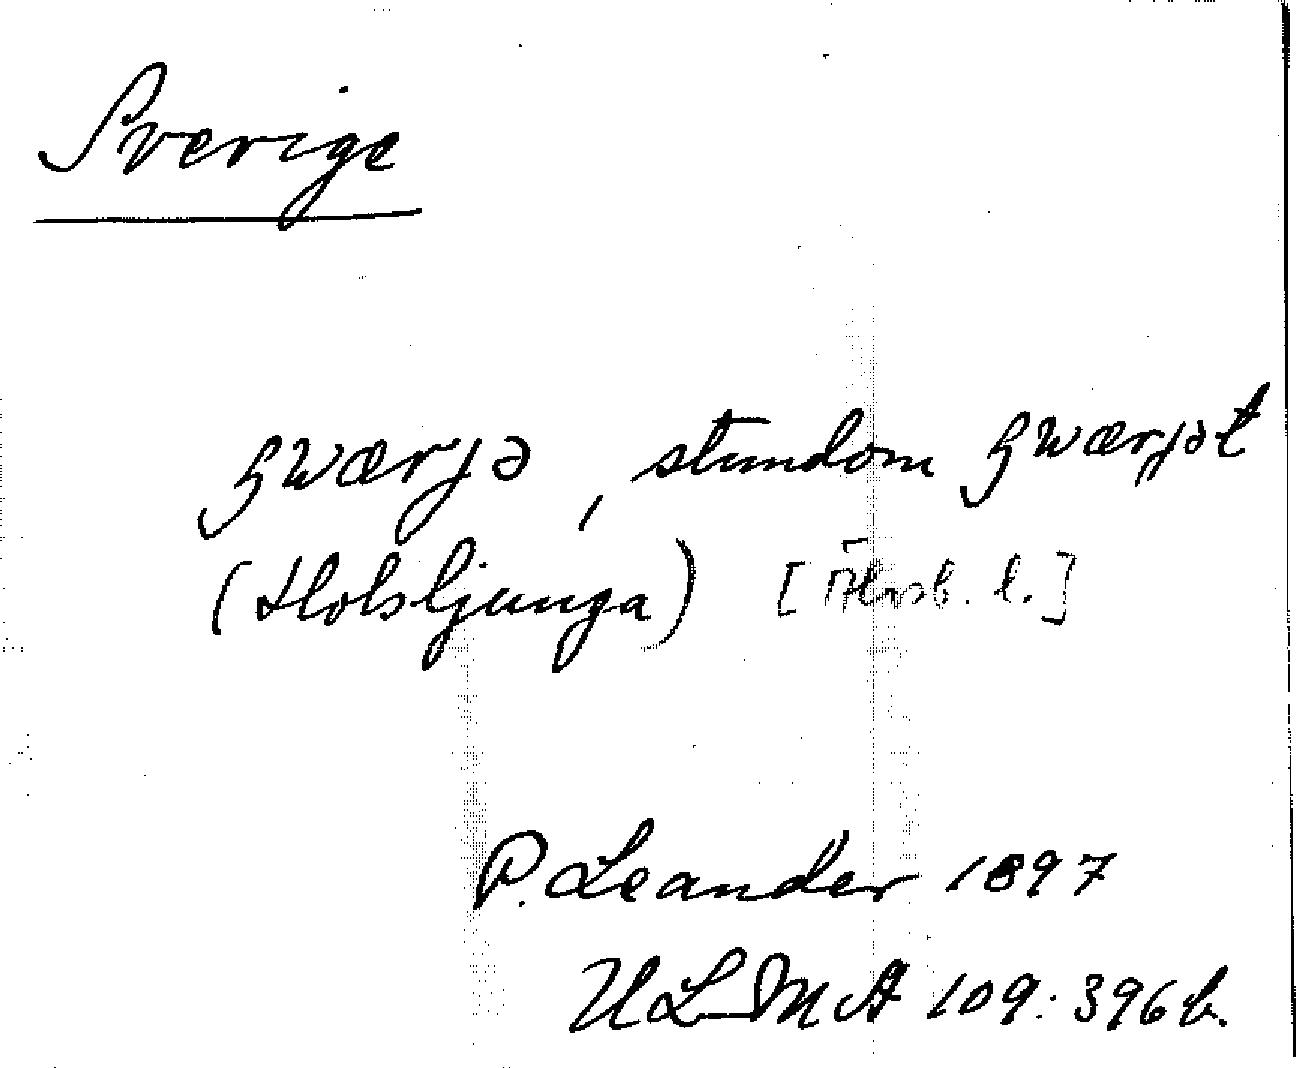 Sverige
swærjə, stundom swærjət
(Holsljunga) [Älvsb. l.]
P. Leander 1897
ULMA 109:396 b.